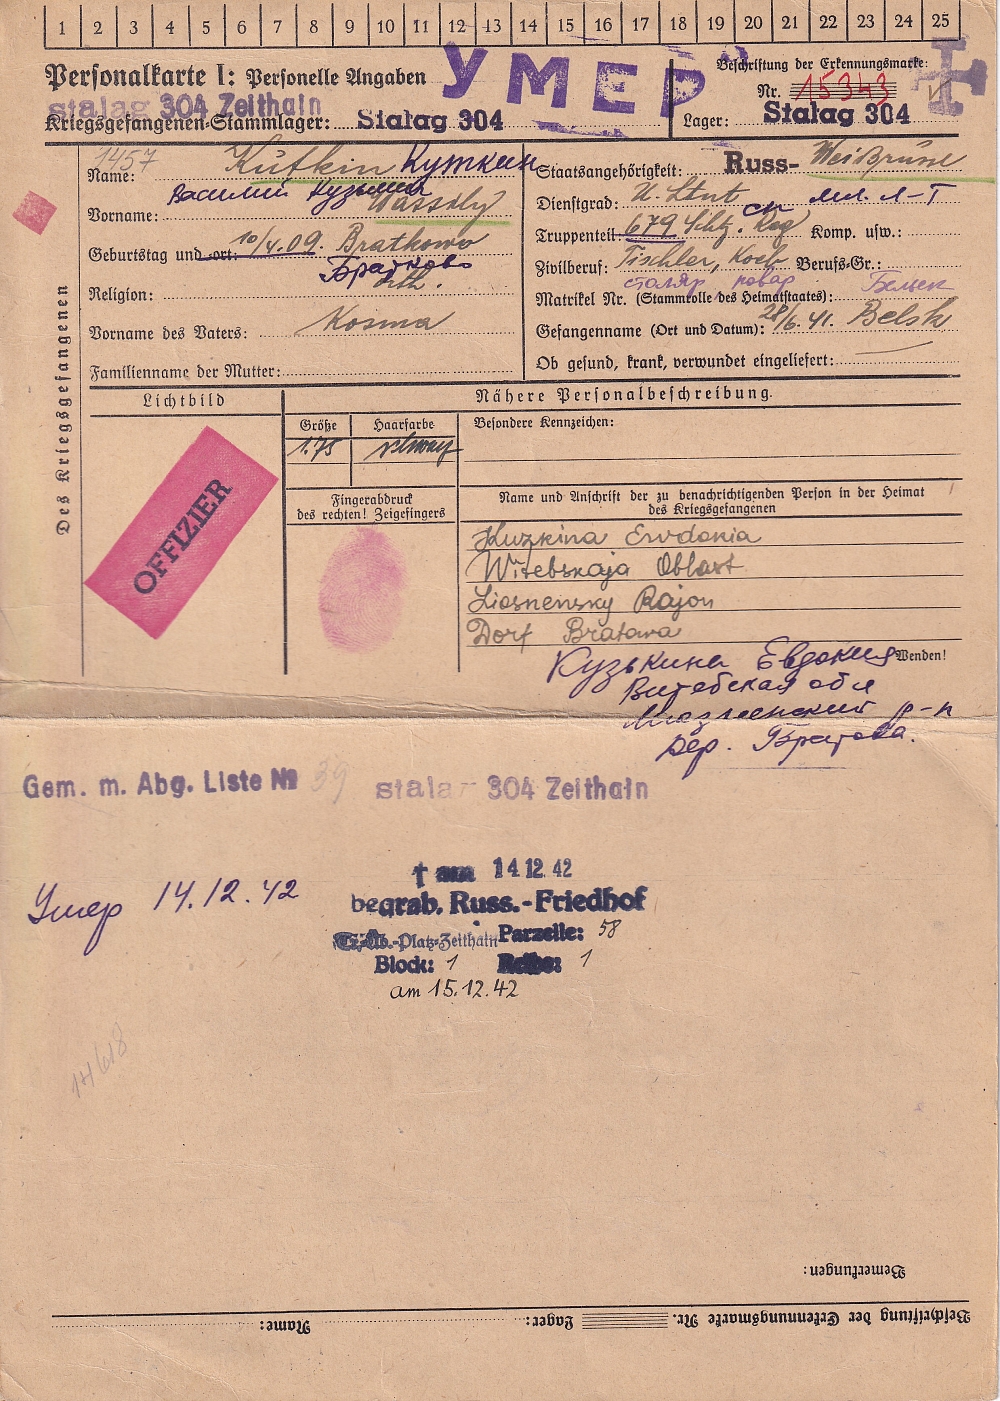 1 2 3 4 5 6 7 8 9 10 11 12 13 14 15 16 17 18 19 20 21 22 23 24 25
Personalkarte I: Personelle Angaben
УМЕР
Beschriftung der Erkennungsmarke:
Nr. 15343
Stalag 304 Zeithain
Kriegsgefangenen-Stammlager: Stalag 304
Lager: Stalag 304
Des Kriegsgefangenen
1457
Name: Kutkin Куткин
Василий Кузьмич
Vorname: Wassily
Geburtstag und -ort: 10/4.09. Bratkowo
Братково
Religion: orth.
Vorname des Vaters: Kosma
Familienname der Mutter:
Staatsangehörigkeit: Russ- Weißrusse
Dienstgrad: U. Ltnt мл. л-т
Truppenteil: 679 Schtz. Reg сп Komp. usw.:
Zivilberuf: Tischler, Koch Berufs-Gr.:
столяр, повар Бельск
Matrikel Nr. (Stammrolle des Heimatstaates):
Gefangenname (Ort und Datum): 28/6.41. Belsk
Ob gesund, krank, verwundet eingeliefert:
Lichtbild
OFFIZIER
Nähere Personalbeschreibung
Größe Haarfarbe Besondere Kennzeichen:
1.75 schwarz
Fingerabdruck
des rechten! Zeigefingers
Name und Anschrift der zu benachrichtigenden Person in der Heimat
des Kriegsgefangenen
Kuzkina Ewdokia
Witebskaja Oblast
Liosnensky Rajon
Dorf Bratawa
Wenden!
Кузькина Евдокия
Витебская обл
Лиозненский р-н
Дер. Братова.
Gem. m. Abg. Liste № 39
Stalag 304 Zeithain
Умер 14.12.42
† am 14.12.42
begrab. Russ.-Friedhof
Tr.-Üb.-Platz-Zeithain Parzelle: 58
Block: 1 Reihe: 1
am 15.12.42
14618
Bemerkungen:
Beschriftung der Erkennungsmarke Nr. Lager: Name: